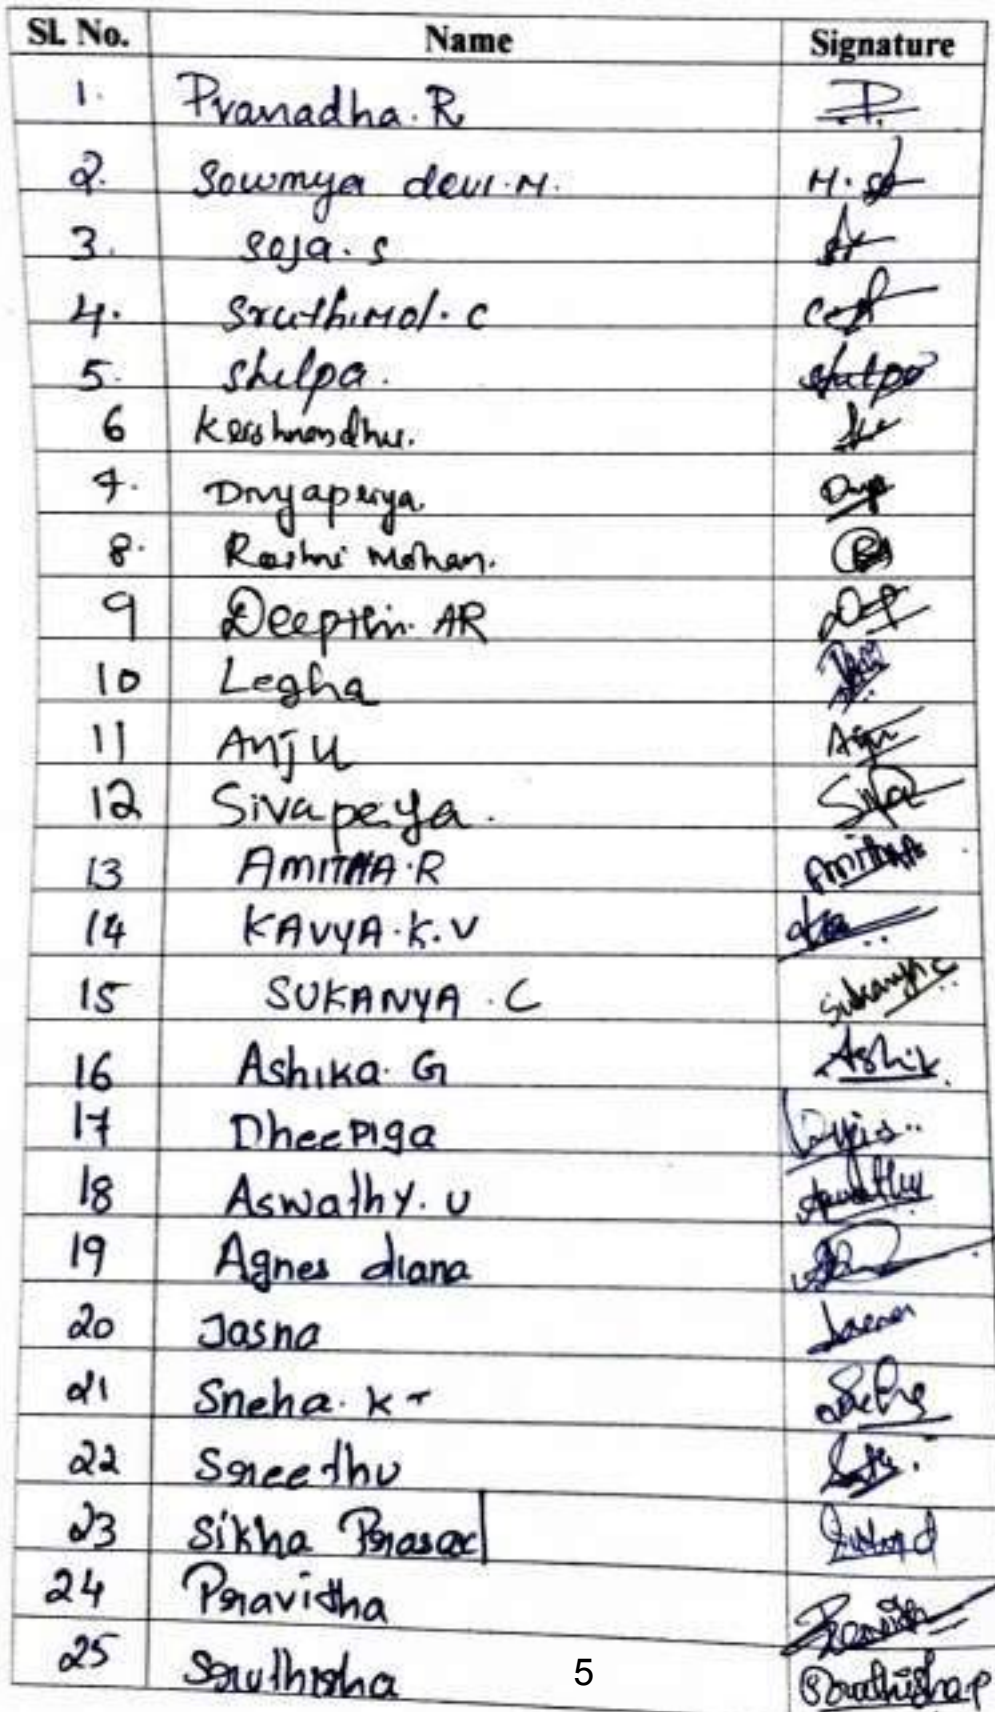 Sl. No. Name Signature
1. Pranadha. R
2. Sowmya devi. M. M. 
3. Soja. S
4. Sruthimol. C
5. Shilpa. Shilpa
6 Krishnandhu.
7. Divyapriya. Divya
8. Reshmi Mohan.
9 Deepthi. AR
10 Legha
11 Anju Anju
12 Sivapriya. Siva
13 AMITHA. R Amitha
14 KAVYA. K. V
15 SUKANYA. C Sukanya C
16 Ashika. G Ashik
17 Dheepiga
18 Aswathy. U Aswathy
19 Agnes diana
20 Jasna Jasna
21 Sneha. K T
22 Sreethu
23 Sikha Prasad
24 Pravitha Pravitha
25 Sruthisha Sruthisha P
5